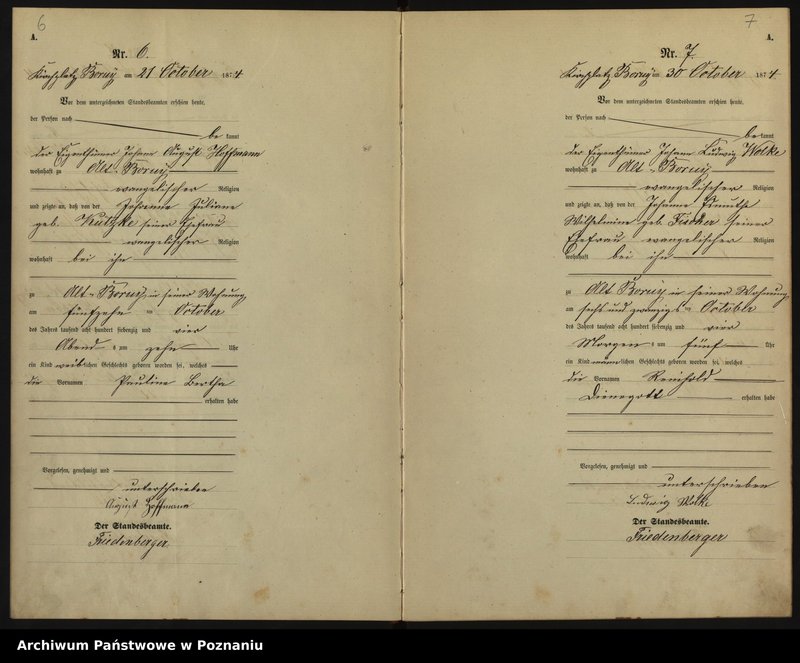 6
A.
Nr. 6.
Kirchplatz Boruy am 21 October 1874
Vor dem unterzeichneten Standesbeamten erschien heute,
der Person nach
bekannt
der Eigenthümer Johann August Hoffmann
wohnhaft zu Alt-Boruy
evangelischer Religion
und zeigte an, daß von der Johanne Juliane
geb. Kutzke seiner Ehefrau
evangelischer Religion
wohnhaft bei ihm
zu Alt-Boruy in seiner Wohnung
am fünfzehn ten October
des Jahres tausend acht hundert siebenzig und vier
Abend s um zehn Uhr
ein Kind weiblichen Geschlechts geboren worden sei, welches
die Vornamen Pauline Bertha
erhalten habe
Vorgelesen, genehmigt und
unterschrieben
August Hoffmann
Der Standesbeamte.
Friedenberger
7
A.
Nr. 7.
Kirchplatz Boruy am 30 October 1874.
Vor dem unterzeichneten Standesbeamten erschien heute,
der Person nach
bekannt
der Eigenthümer Johann Ludwig Wolke
wohnhaft zu Alt-Boruy
evangelischer Religion
und zeigte an, daß von der Johanne
Wilhelmine geb. Fischer seiner
Ehefrau evangelischer Religion
wohnhaft bei ihm
zu Alt Boruy in seiner Wohnung
am sechs und zwanzigs ten October
des Jahres tausend acht hundert siebenzig und vier
Morgen s um fünf Uhr
ein Kind männlichen Geschlechts geboren worden sei, welches
die Vornamen Reinhold
Dienegott erhalten habe
Vorgelesen, genehmigt und
unterschrieben
Ludwig Wolke
Der Standesbeamte.
Friedenberger
Archiwum Państwowe w Poznaniu